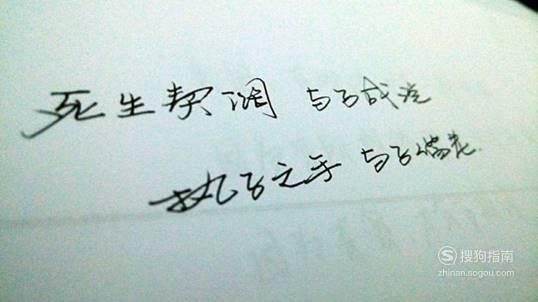 死生契阔 与子成说
执子之手 与子偕老
搜狗指南
zhinan.sogou.com